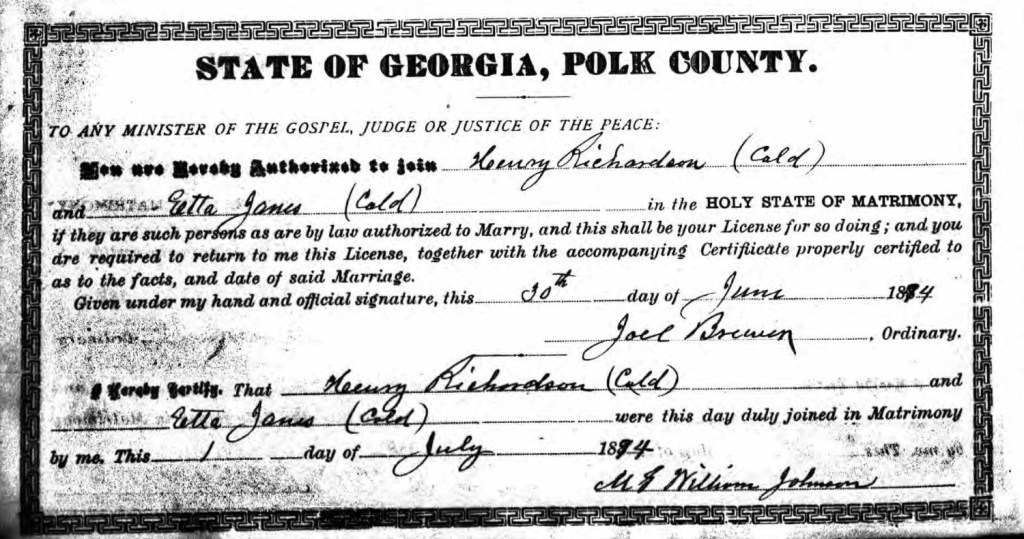 STATE OF GEORGIA, POLK COUNTY.
TO ANY MINISTER OF THE GOSPEL, JUDGE OR JUSTICE OF THE PEACE:
You are Hereby Authorized to join Henry Richardson (Cold)
and Etta Janes (Cold) in the HOLY STATE OF MATRIMONY,
if they are such persons as are by law authorized to Marry, and this shall be your License for so doing; and you
are required to return to me this License, together with the accompanying Certificate properly certified to
as to the facts, and date of said Marriage.
Given under my hand and official signature, this 30th day of June 1894
Joel Brewer, Ordinary.
I Hereby Certify, That Henry Richardson (Cold) and
Etta Janes (Cold) were this day duly joined in Matrimony
by me. This 1 day of July 1894
William Johnson